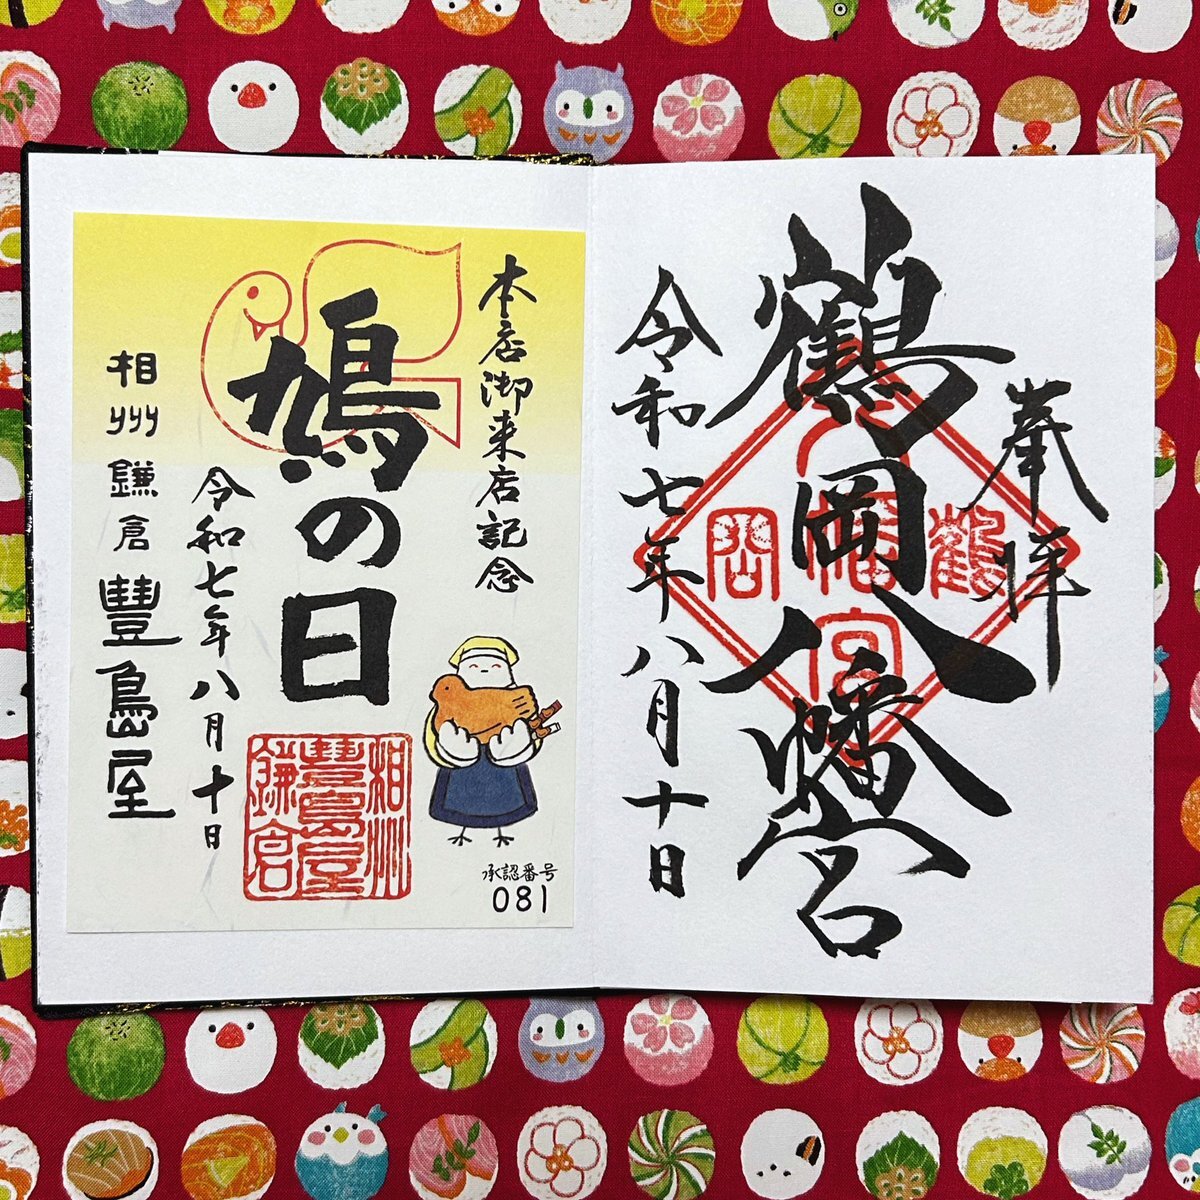 奉拝
鶴岡八幡宮
令和七年八月十日
鶴
岡
八幡
宮
本店御来店記念
鳩の日
令和七年八月十日
相州鎌倉豊島屋
相州
豊島屋
鎌倉
承認番号
081